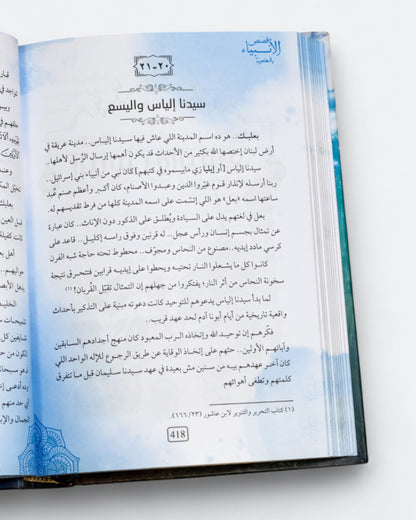 قصص
الأنبياء
بالعامية
٢٠-٢١
سيدنا إلياس واليسع
بعلبك.. هو ده اسم المدينة اللي عاش فيها سيدنا إلياس.. مدينة عريقة في
أرض لبنان إختصها الله بكتير من الأحداث قد يكون أهمها إرسال الرُسل لأهلها..
سيدنا إلياس [أو إيليا زي مابيسموه في كتبهم] كان نبي من أنبياء بني إسرائيل..
ربنا أرسله لإنذار قوم غيّروا الدين وعبدوا الأصنام، كان أكبر وأعظم صنم عُبد
ساعتها اسمه «بعل» هو اللي إتسّمت على اسمه المدينة كلها من فرط تقديسهم له.
بعل في لغتهم يدل على السيادة ويُطلق على الذكور دون الإناث.. كان عبارة
عن تمثال بجسم إنسان ورأس عجل.. له قرنين وفوق راسه إكليل.. قاعد على
كرسي مادد إيديه.. مصنوع من النحاس ومجوّف.. محطوط تحته حاجة شبه الفرن
كانوا كل ما يشعلوا النار تحتيه ويحطوا على إيديه قرابين فتتحرق نتيجة
سخونة النحاس من أثر النار؛ يفتكروا من جهلهم إن التمثال تقبّل القُربان! (١)
لما بدأ سيدنا إلياس يدعوهم للتوحيد كانت دعوته مبنية على التذكير بأحداث
واقعة تاريخية من أيام أبونا آدم لحد عهد قريب..
فكّرهم إن توحيد الله وإتخاذه الرب المعبود كان منهج أجدادهم السابقين
وآبائهم الأولين.. حثهم على إتخاذ الوقاية عن طريق الرجوع للإله الواحد اللي
كان آخر عهدهم بيه من سنين مش بعيدة في عهد سيدنا سليمان قبل ما تتفرق
كلمتهم وتطغى أهوائهم
(١) كتاب التحرير والتنوير لابن عاشور (١٦٦/٢٣).
418